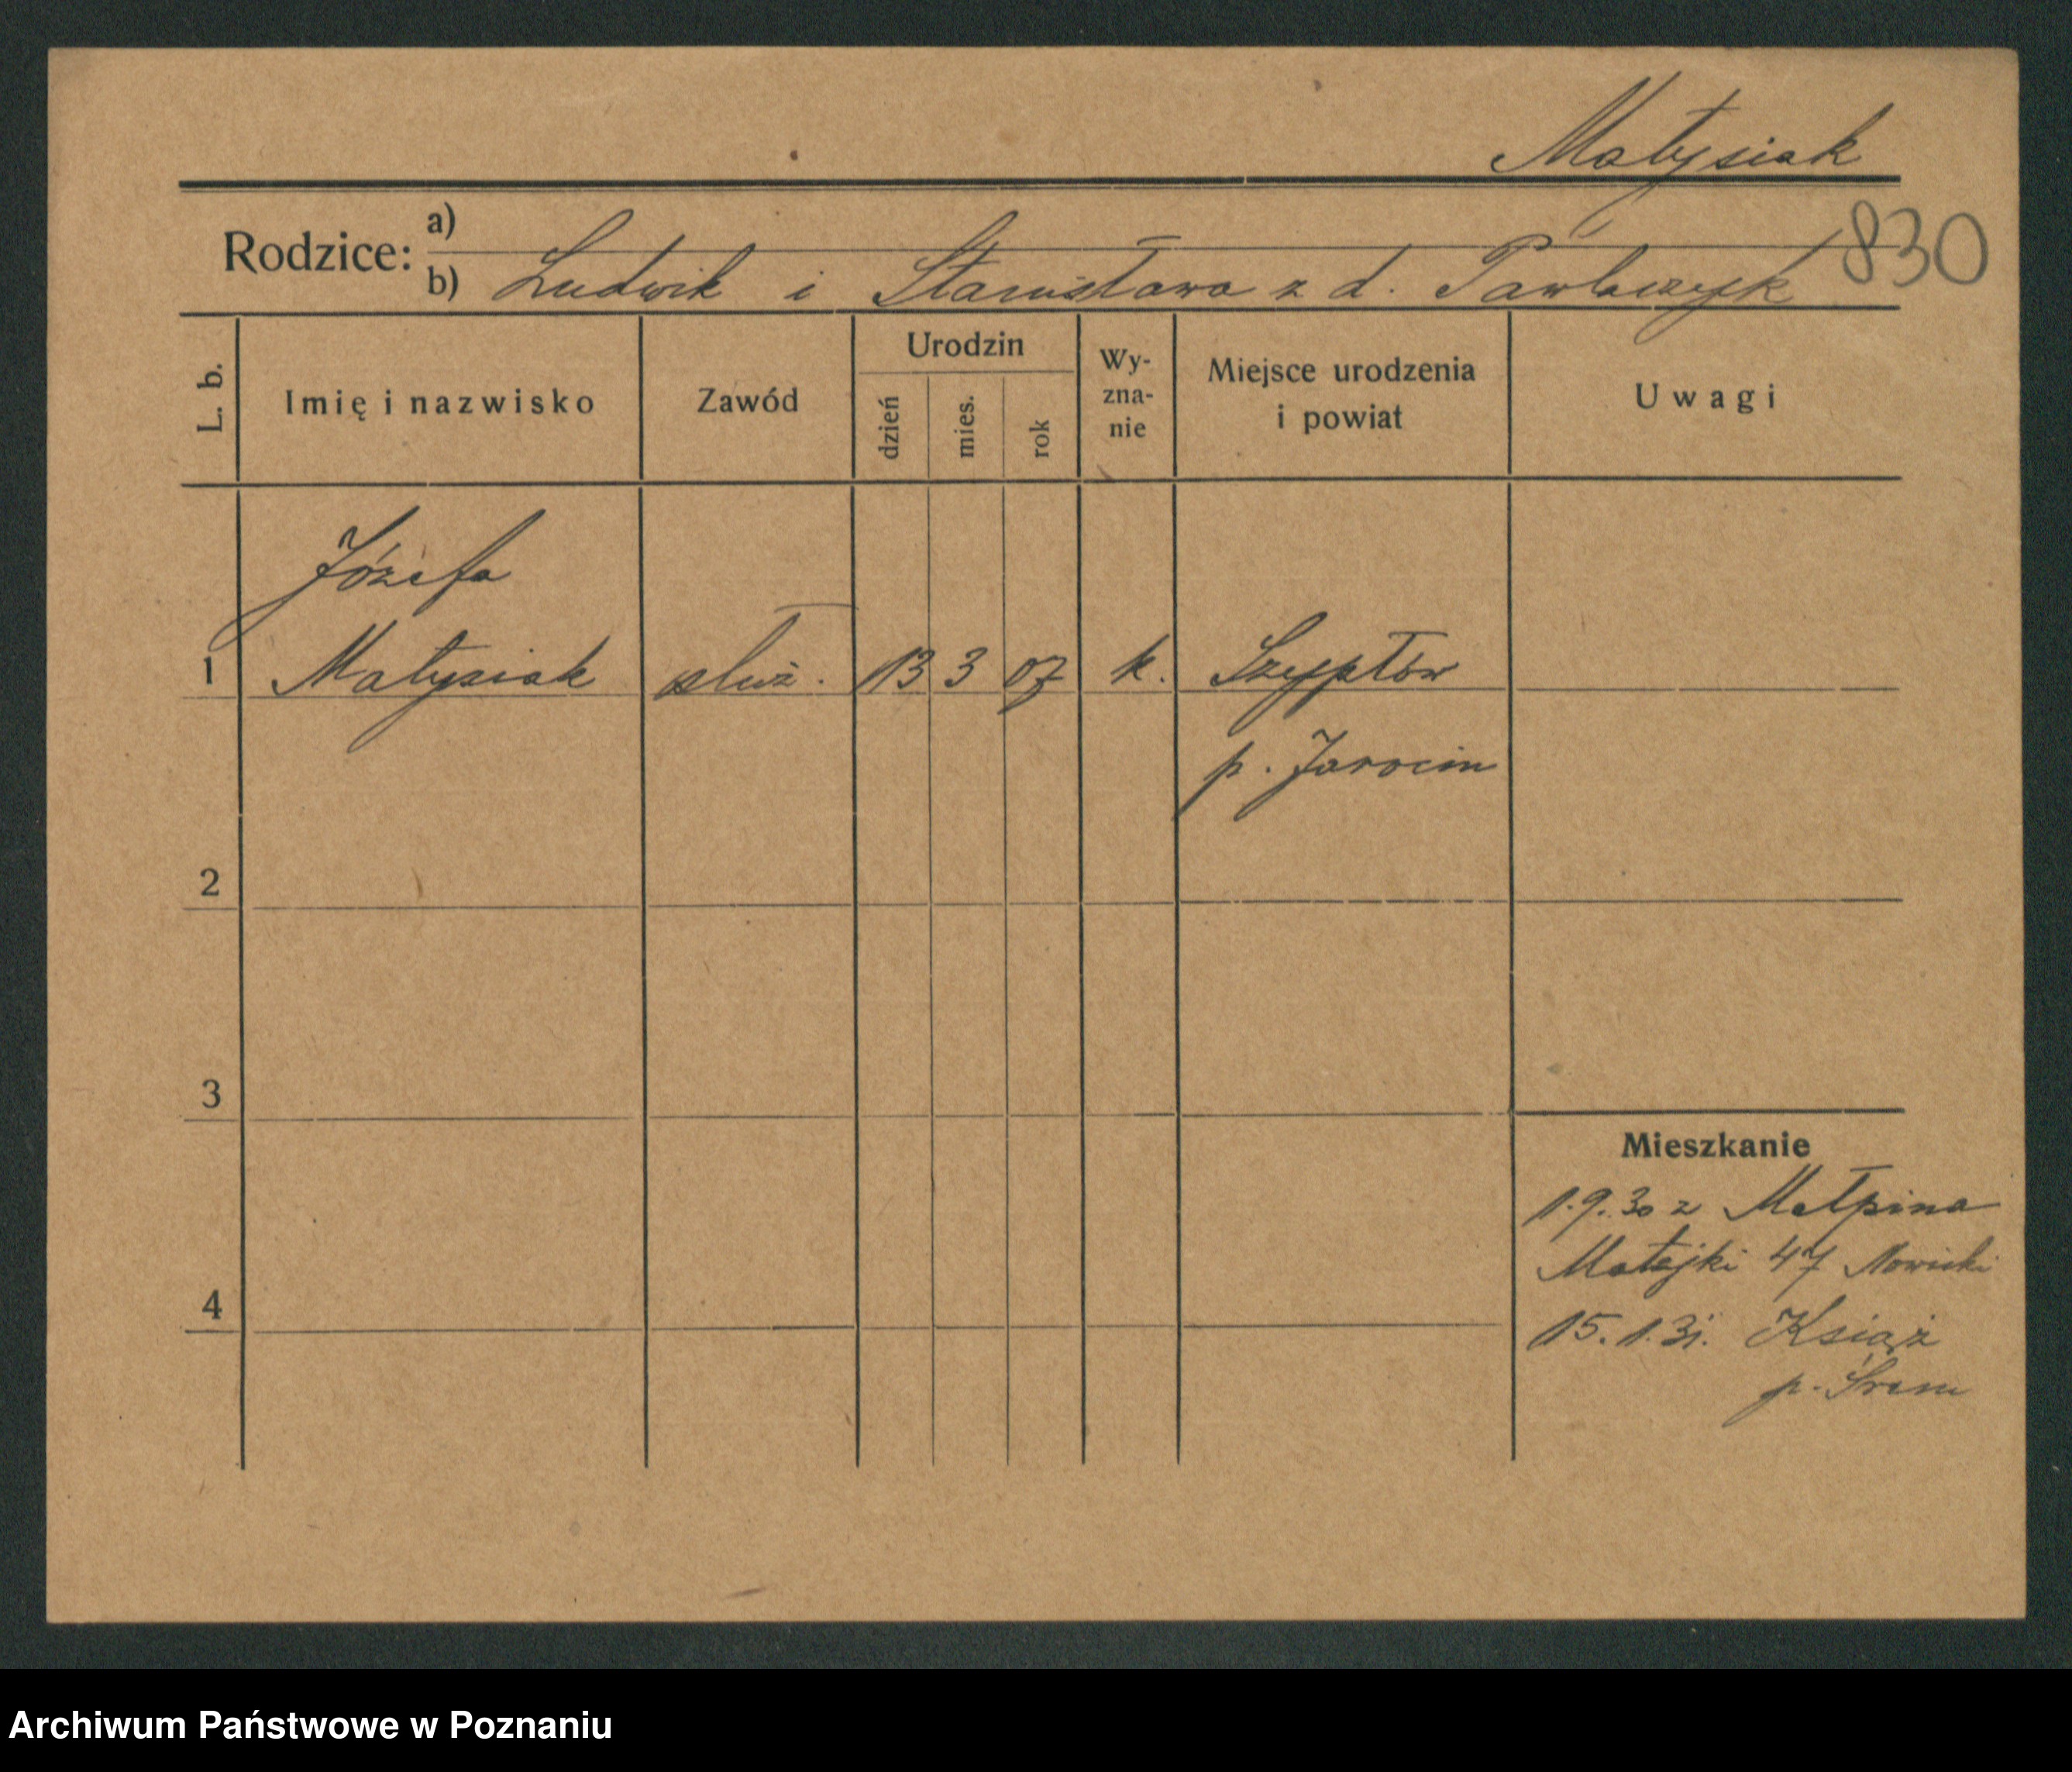 Matysiak
Rodzice: a)
b) Ludwik i Stanisława z d. Pawlaczyk 830
L. b. Imię i nazwisko Zawód Urodzin dzień mies. rok Wy-zna-nie Miejsce urodzenia i powiat Uwagi
Józefa
1 Matysiak służ. 13 3 07 k. Szypłów
p. Jarocin
2
3
Mieszkanie
1.9.30 z Mełpina
Matejki 47 Nowicki
4
15.1.31. Książ
p. Śrem
Archiwum Państwowe w Poznaniu